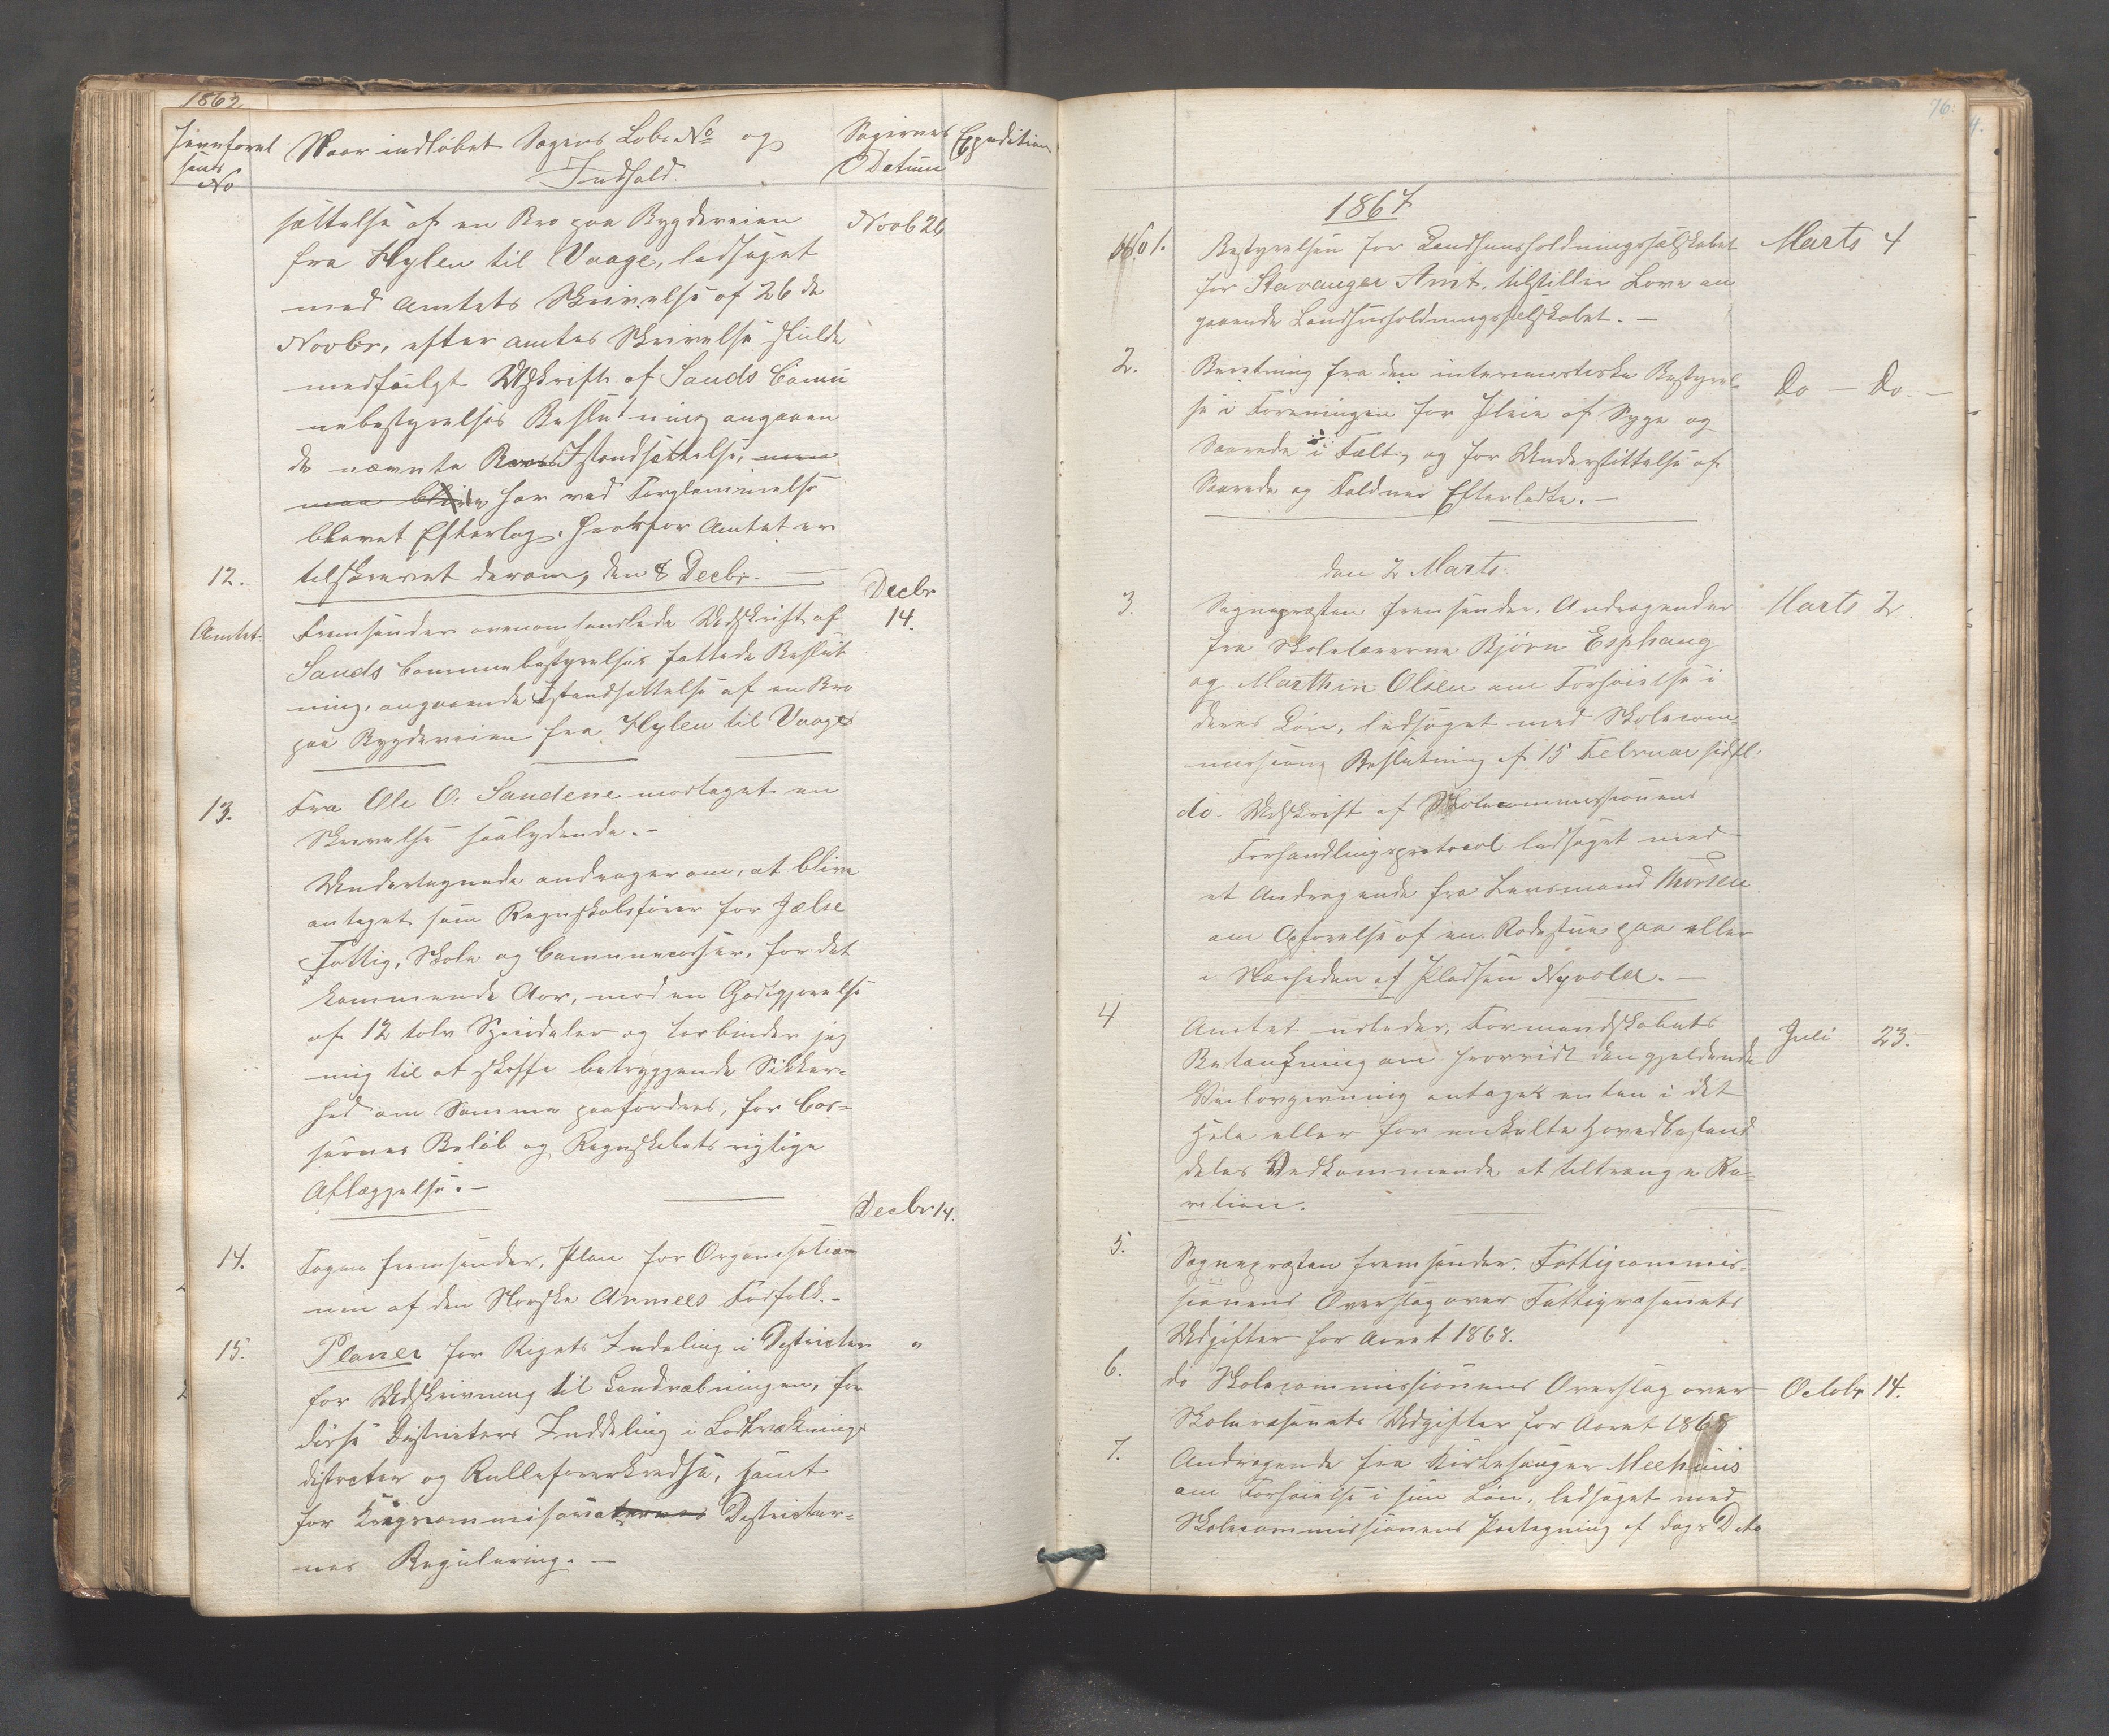 1862
Naar indløbet Sagens Løbe No og
Indhold.
Sagernes
Datum
Expedition
No
sættelse af en Bro paa Bygdeveien
Novb 26
fra Hylen til Vaage, ledsaget
med Amtets Skrivelse af 26de
Novbr, efter amtes Skrivelse skulde
medfølgt Udskrift af Sands Comu
nebestyrelses Beslutning angaaen
de nævnte Broes Istandsættelse, men
maa blive har ved Forglemmelse
blevet Efterlagt, hvorfor Amtet er
12.
tilskrevet derom, den 8 Decbr.
Decbr
14.
Amtet.
Fremsender ovenomhandlede Udskrift af
Sands Communebestyrelses fattede Beslut
ning, angaaende Istandsættelse af en Bro
paa Bygdeveien fra Hylen til Vaage
13.
Fra Ole O. Sandene modtaget en
Skrivelse saalydende. -
Undertegnede andrager om, at blive
antaget som Regnskabsfører for Jælse
Fattig, Skole og Communecasser, for det
kommende Aar, mod en Godtgjørelse
af 12 tolv Speidaler og forbinder jeg
mig til at skaffe betryggende Sikker-
hed om Samme paafordres, for Cas-
sernes Beløb og Regnskabets rigtige
Aflæggelse. -
Decbr 14.
14.
Fogen fremsender, Plan for Organisatio
nen af den Norske Armees Fodfolk. -
15.
Planer for Rigets Indeling i Districter
"
for Udskrivning til Landværningen, for
disse Districters Inddeling i Lodtræknings
districter og Rulleførerkredse, samt
for Krigscommisariaternes Districter-
nes Regulering. -
76.
1867
No 1.
Bestyrelsen for Landhuusholdningsselskabet
Marts 4
for Stavanger Amt, tilstiller Love an
gaaende Landhusholdningsselskabet. -
2.
Beretning fra den interimistiske Bestyrel-
Do - Do. -
se i Foreningen for Pleie af Syge og
Saarede i Felt, og for Understøttelse af
Saarede og Faldnes Efterladte. -
den 2 Marts.
3.
Sognepresten fremsender, Andragender
Marts 2
fra Skolelærerne Bjørn Esphaug
og Marthin Olsen om Forhøielse i
deres Løn, ledsaget med Skolecom-
missions Beslutning af 15 Februar sidstl.
do. Udskrift af Skolecommissionens
Forhandlingsprotocol ledsaget med
et Andragende fra Lensmand Thorsen
om Opførelse af en Rodestue paa eller
i Nærheden af Pladsen Nyvold. -
4
Amtet udbeder, Formandskabets
Juli 23.
Betænkning om hvorvidt den gjeldende
Veilovgivning antages enten i det
Hele eller for enkelte Hovedbestand
deles Vedkommende at tiltrænge Re-
vition.
5.
Sognepresten fremsender, Fattigcommis-
sionens Overslag over Fattigvæsenets
Udgifter for Aaret 1868.
6.
do Skolecommissionens Overslag over
Octobr 14.
Skolevæsenets Udgifter for Aaret 1868
7.
Andragende fra Kirkesanger
om Forhøielse i sin Løn, ledsaget med
Skolecommissionens Paategning af dags Dato